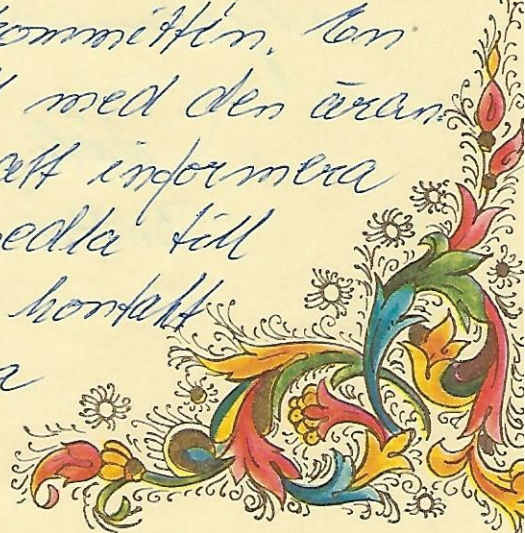 kommittén. En
med den äran
att informera
till
kontakt